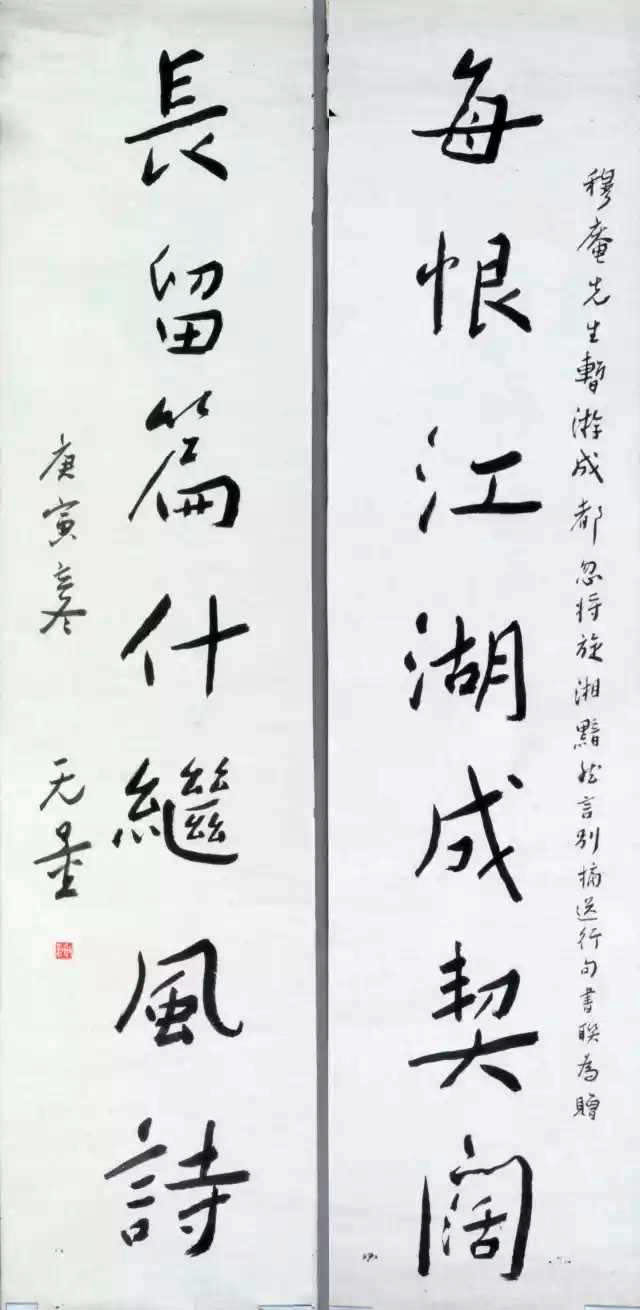 穆庵先生暫游成都忽將旋湘黯然言別摘送行句書联為贈
每恨江湖成契闊
長留篇什繼風詩
庚寅寒
无量